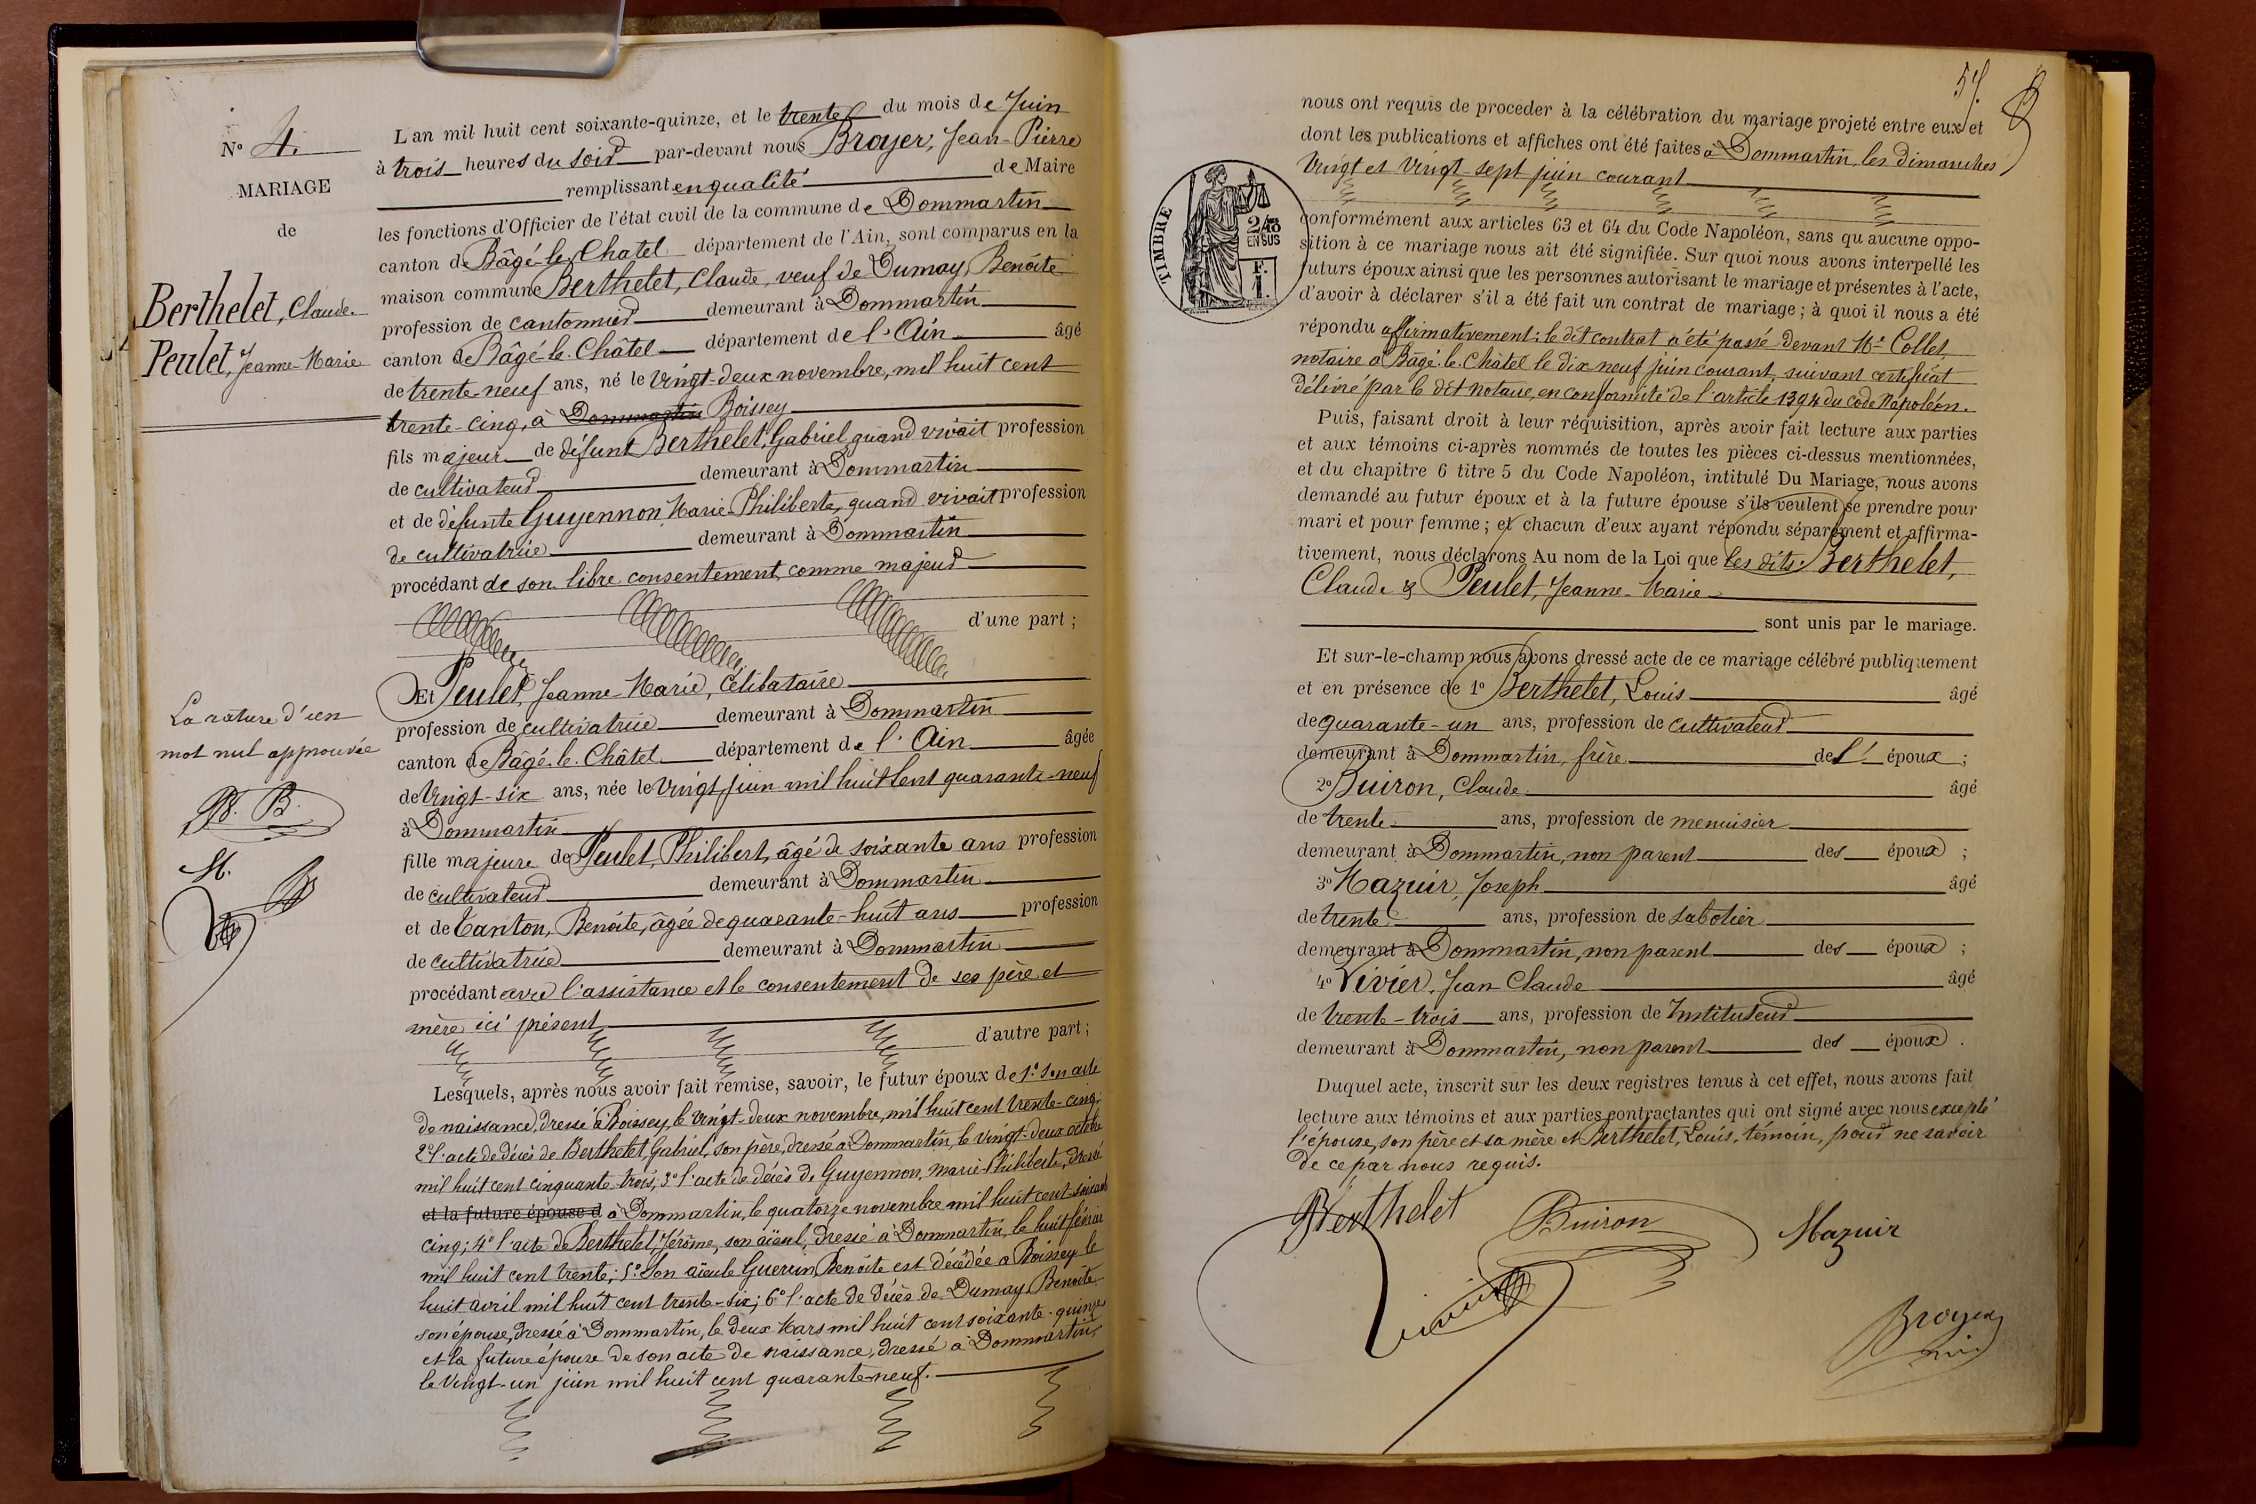 N° 4.
MARIAGE
de
Berthelet, Claude.
Peulet, Jeanne-Marie
La rature d'un
mot nul approuvée
B.
M.
L'an mil huit cent soixante-quinze, et le trente du mois de Juin
à trois heures du soir par-devant nous Broyer, Jean-Pierre
remplissant en qualité de Maire
les fonctions d'Officier de l'état civil de la commune de Dommartin
canton de Bâgé-le-Chatel département de l'Ain, sont comparus en la
maison commune Berthelet, Claude, veuf de Dumay Benoite
profession de cantonnier demeurant à Dommartin
canton de Bâgé-le-Châtel département de l'Ain âgé
de trente neuf ans, né le vingt-deux novembre, mil huit cent
trente-cinq, à Dommartin Boissey
fils majeur de défunt Berthelet, Gabriel quand vivait profession
de cultivateur demeurant à Dommartin
et de défunte Guyennon, Marie-Philiberte, quand vivait profession
de cultivatrice demeurant à Dommartin
procédant de son libre consentement comme majeur
d'une part ;
Et Peulet, Jeanne-Marie, célibataire
profession de cultivatrice demeurant à Dommartin
canton de Bâgé-le-Châtel département de l'Ain âgée
de vingt-six ans, née le vingt juin mil huit cent quarante-neuf
à Dommartin
fille majeure de Peulet, Philibert, âgé de soixante ans profession
de cultivateur demeurant à Dommartin
et de Canton, Benoite, âgée de quarante-huit ans profession
de cultivatrice demeurant à Dommartin
procédant avec l'assistance et le consentement de ses père et
mère ici présent
d'autre part ;
Lesquels, après nous avoir fait remise, savoir, le futur époux de 1° son acte
de naissance, dressé à Boissey, le vingt-deux novembre, mil huit cent trente-cinq;
2° l'acte de décès de Berthelet, Gabriel, son père, dressé à Dommartin, le vingt-deux octobre
mil huit cent cinquante-trois, 3° l'acte de décès de Guyennon, Marie-Philiberte, dressé
et la future épouse d à Dommartin, le quatorze novembre mil huit cent soixante
cinq; 4° l'acte de Berthelet, Jérôme, son aïeul, dressé à Dommartin, le huit février
mil huit cent trente; 5° Son aïeule Guerin, Benoite est décédée à Boissey le
huit avril mil huit cent trente-six; 6° l'acte de décès de Dumay Benoite
son épouse, dressé à Dommartin, le deux Mars mil huit cent soixante-quinze
et la future épouse de son acte de naissance, dressé à Dommartin
le vingt-un juin mil huit cent quarante-neuf.
57.
nous ont requis de proceder à la célébration du mariage projeté entre eux et
dont les publications et affiches ont été faites à Dommartin, les dimanches
vingt et vingt-sept juin courant
TIMBRE
2/10
EN SUS
F.
1.
conformément aux articles 63 et 64 du Code Napoléon, sans qu'aucune oppo-
sition à ce mariage nous ait été signifiée. Sur quoi nous avons interpellé les
futurs époux ainsi que les personnes autorisant le mariage et présentes à l'acte,
d'avoir à déclarer s'il a été fait un contrat de mariage ; à quoi il nous a été
répondu affirmativement : le dit contrat a été passé devant Me Collet,
notaire à Bâgé-le-Châtel le dix neuf juin courant, suivant certificat
délivré par le dit notaire, en conformité de l'article 1394 du code Napoléon.
Puis, faisant droit à leur réquisition, après avoir fait lecture aux parties
et aux témoins ci-après nommés de toutes les pièces ci-dessus mentionnées,
et du chapitre 6 titre 5 du Code Napoléon, intitulé Du Mariage, nous avons
demandé au futur époux et à la future épouse s'ils veulent se prendre pour
mari et pour femme ; et chacun d'eux ayant répondu séparément et affirma-
tivement, nous déclarons Au nom de la Loi que les dits Berthelet,
Claude & Peulet, Jeanne-Marie
sont unis par le mariage.
Et sur-le-champ nous avons dressé acte de ce mariage célébré publiquement
et en présence de 1° Berthelet, Louis âgé
de quarante-un ans, profession de cultivateur
demeurant à Dommartin, frère de l' époux ;
2° Buiron, Claude âgé
de trente ans, profession de menuisier
demeurant à Dommartin, non parent des époux ;
3° Mazuir, Joseph âgé
de trente ans, profession de sabotier
demeurant à Dommartin, non parent des époux ;
4° Vivier, Jean-Claude âgé
de trente-trois ans, profession de Instituteur
demeurant à Dommartin, non parent des époux .
Duquel acte, inscrit sur les deux registres tenus à cet effet, nous avons fait
lecture aux témoins et aux parties contractantes qui ont signé avec nous excepté
l'épouse, son père et sa mère et Berthelet, Louis, témoin, pour ne savoir
de ce par nous requis.
Berthelet Buiron Mazuir
Vivier
Broyer